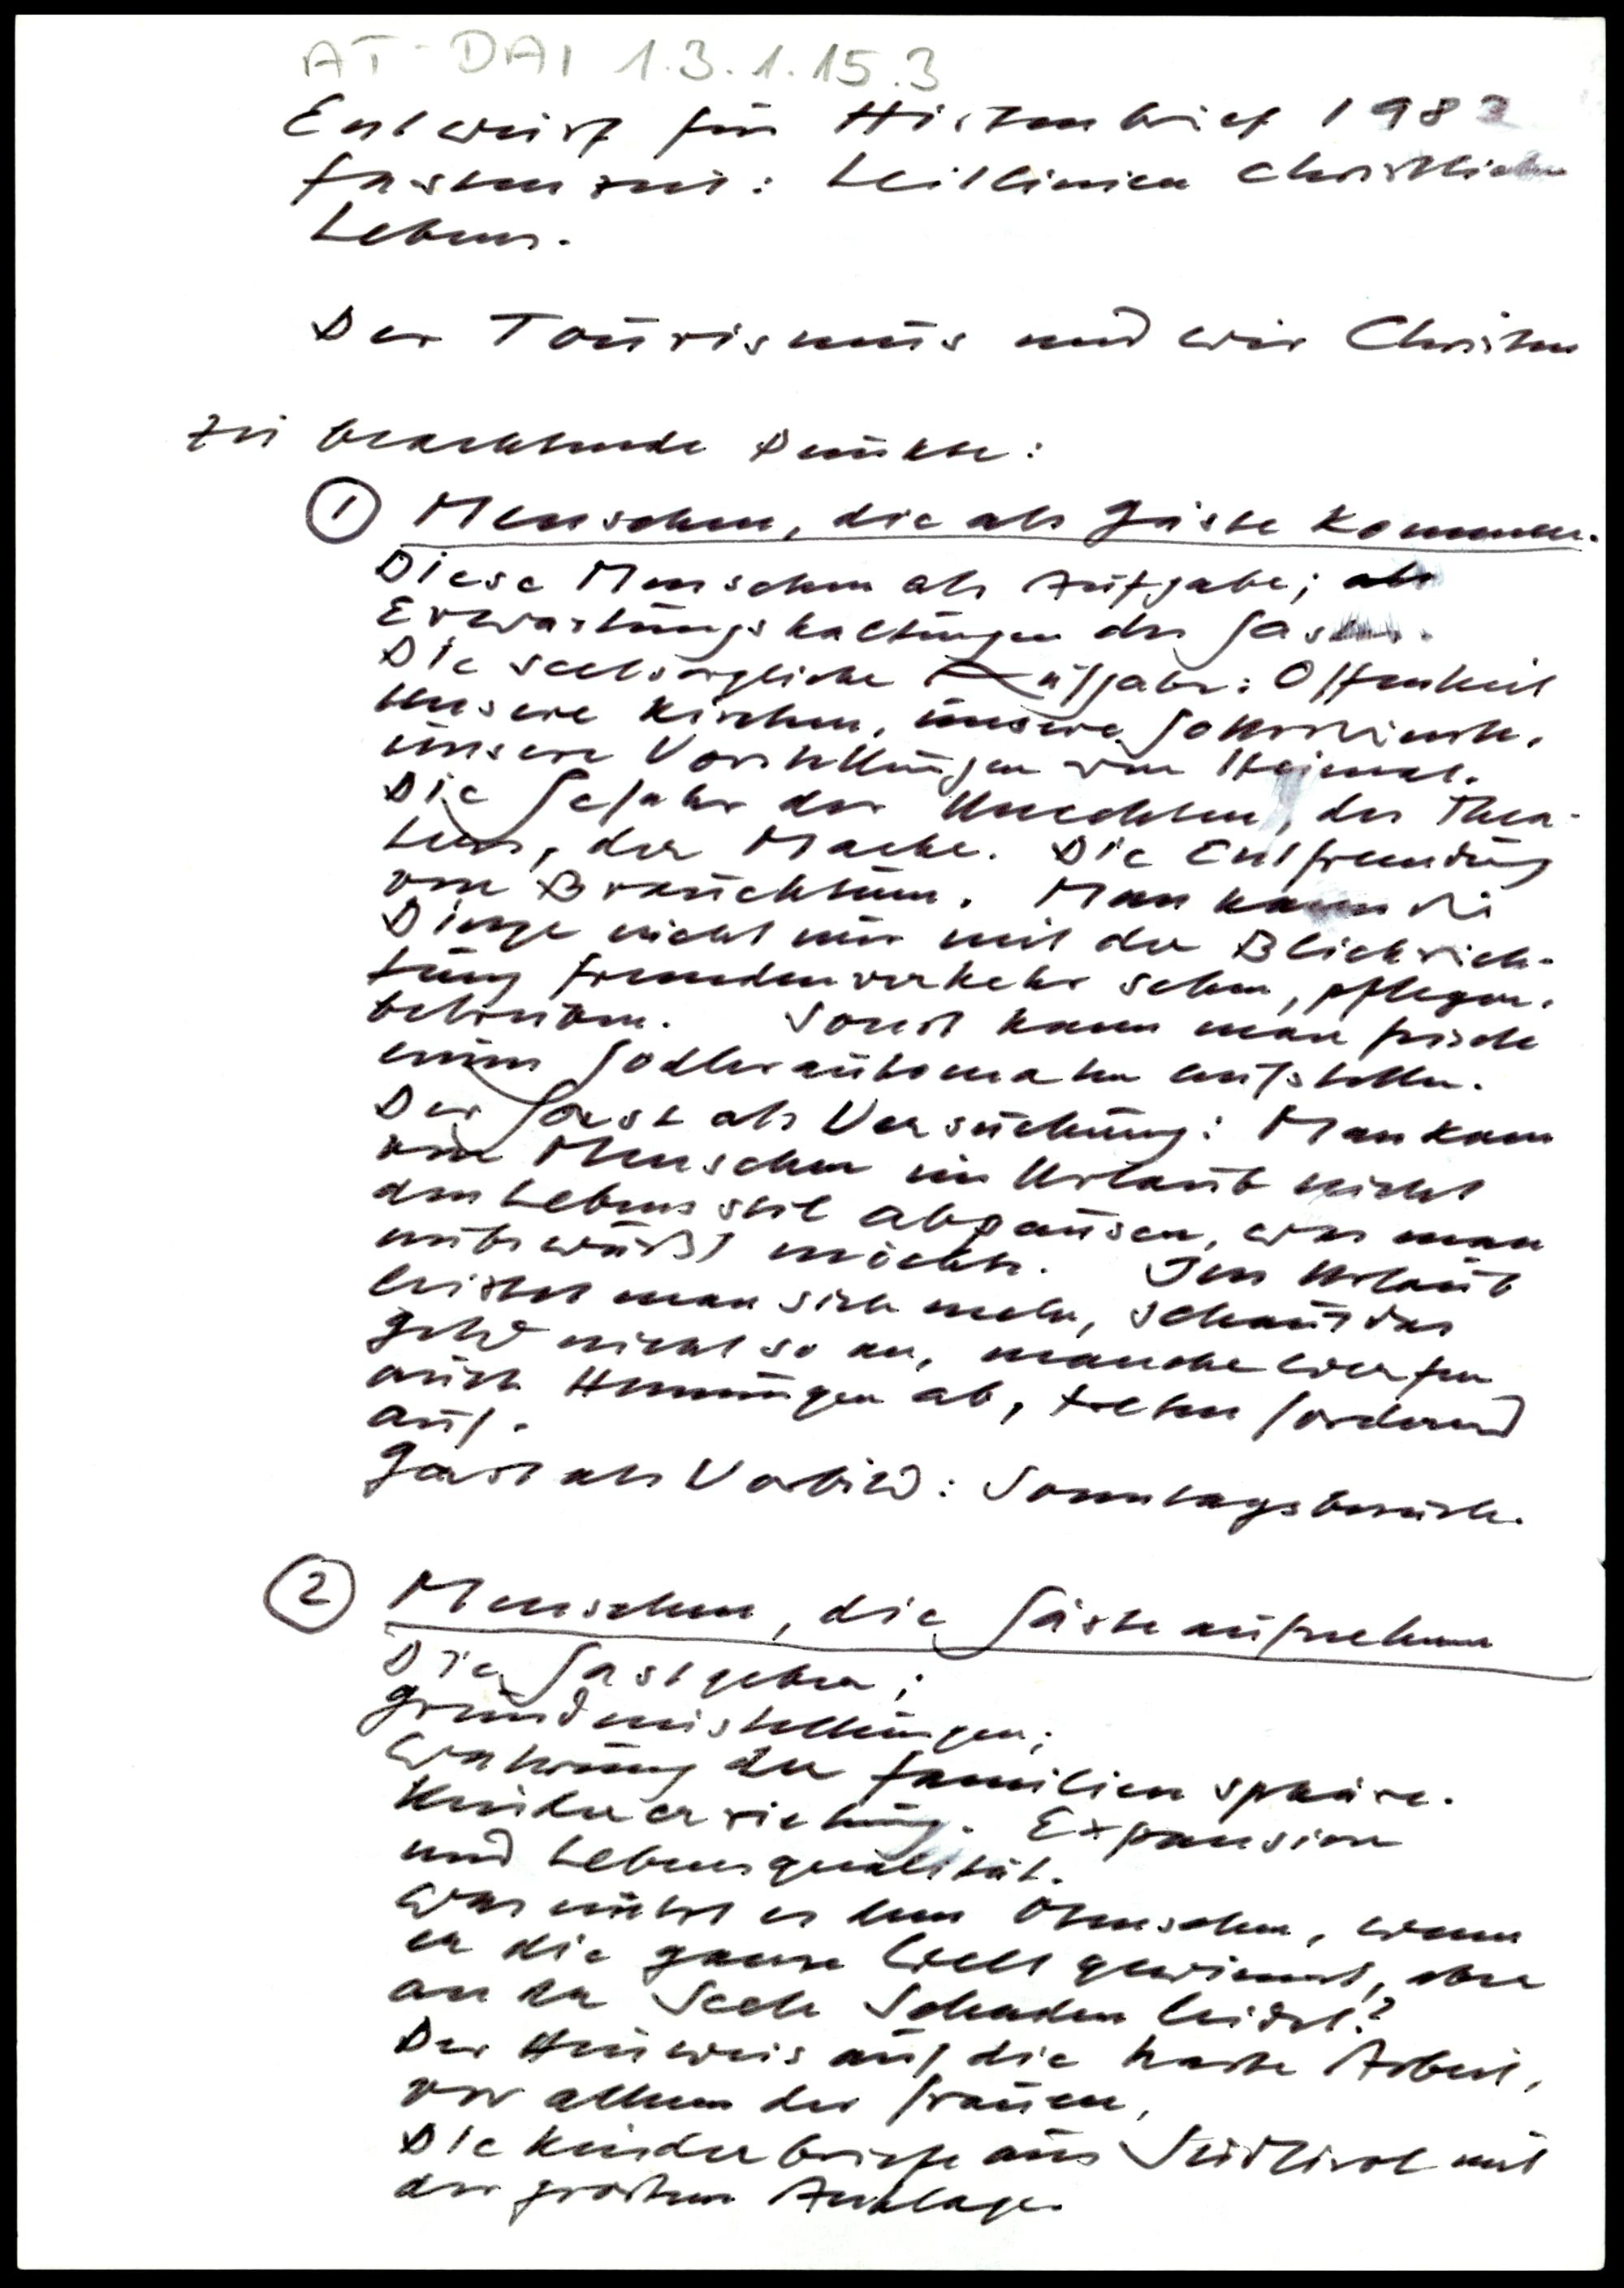 AT-DAI 1.3.1.15.3
Entwurf für Hirtenbrief 1982
Fastenzeit: Leitlinien christlichen
Lebens.
Der Tourismus und wir Christen
Zu beachtende Punkte:
① Menschen, die als Gäste kommen.
Diese Menschen als Aufgabe;
Erwartungshaltungen des Gastes.
Die seelsorgliche Aufgabe: Offenheit
unsere Kirchen, unsere Gottesdienste,
unsere Vorstellungen von Heimat.
Die Gefahr des Unechten, des Thea-
ters, der Mache. Die Entfremdung
von Brauchtum. Man kann die
Dinge nicht nur mit der Blickrich-
tung Fremdenverkehr sehen, pflegen,
betreiben. Sonst kann man
einen Jodlerautomaten aufstellen.
Der Gast als Versuchung: Man kann
von Menschen im Urlaub nicht
den Lebensstil abpausen, was man
möchte. Im Urlaub
leistet man sich mehr, schaut das
Geld nicht so an, manche werfen
auch Hemmungen ab, treten fordernd
auf.
Gast als Vorbild: Sonntagsbesuch.
② Menschen, die Gäste aufnehmen
Die Gastgeber;
Grundeinstellungen;
Wahrung der Familiensphäre.
Kindererziehung. Expansion
und Lebensqualität.
Was nützt es dem Menschen, wenn
er die ganze Welt gewinnt, aber
an der Seele Schaden leidet?
Der Hinweis auf die harte Arbeit,
vor allem der Frauen,
Die Kinderbriefe aus Südtirol mit
der großen Anklage.